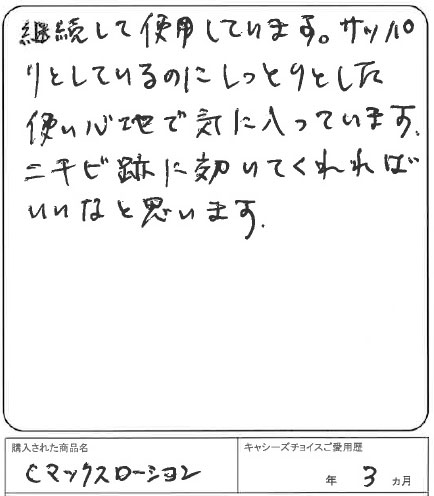 継続して使用しています。サッパ
リとしているのにしっとりとした
使い心地で気に入っています.
ニキビ跡に効いてくれれば
いいなと思います.
購入された商品名
キャシーズチョイスご愛用歴
Cマックスローション
年 3 ヵ月